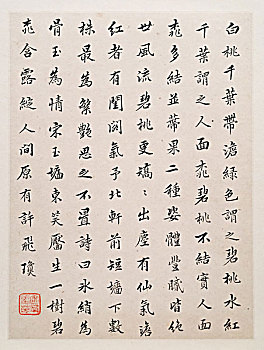 白桃千葉帶澹綠色謂之碧桃水紅
千葉謂之人面桃碧桃不結實人面
桃多結並蒂果二種姿體豐膩皆絕
世風流碧桃更矯〻出塵有仙氣澹
紅者有閨閤氣予北軒前短墻下數
株最為繁艷思之不置詩曰冰綃為
骨玉為情宋玉墻東笑靨生一樹碧
桃含露綻人間原有許飛瓊